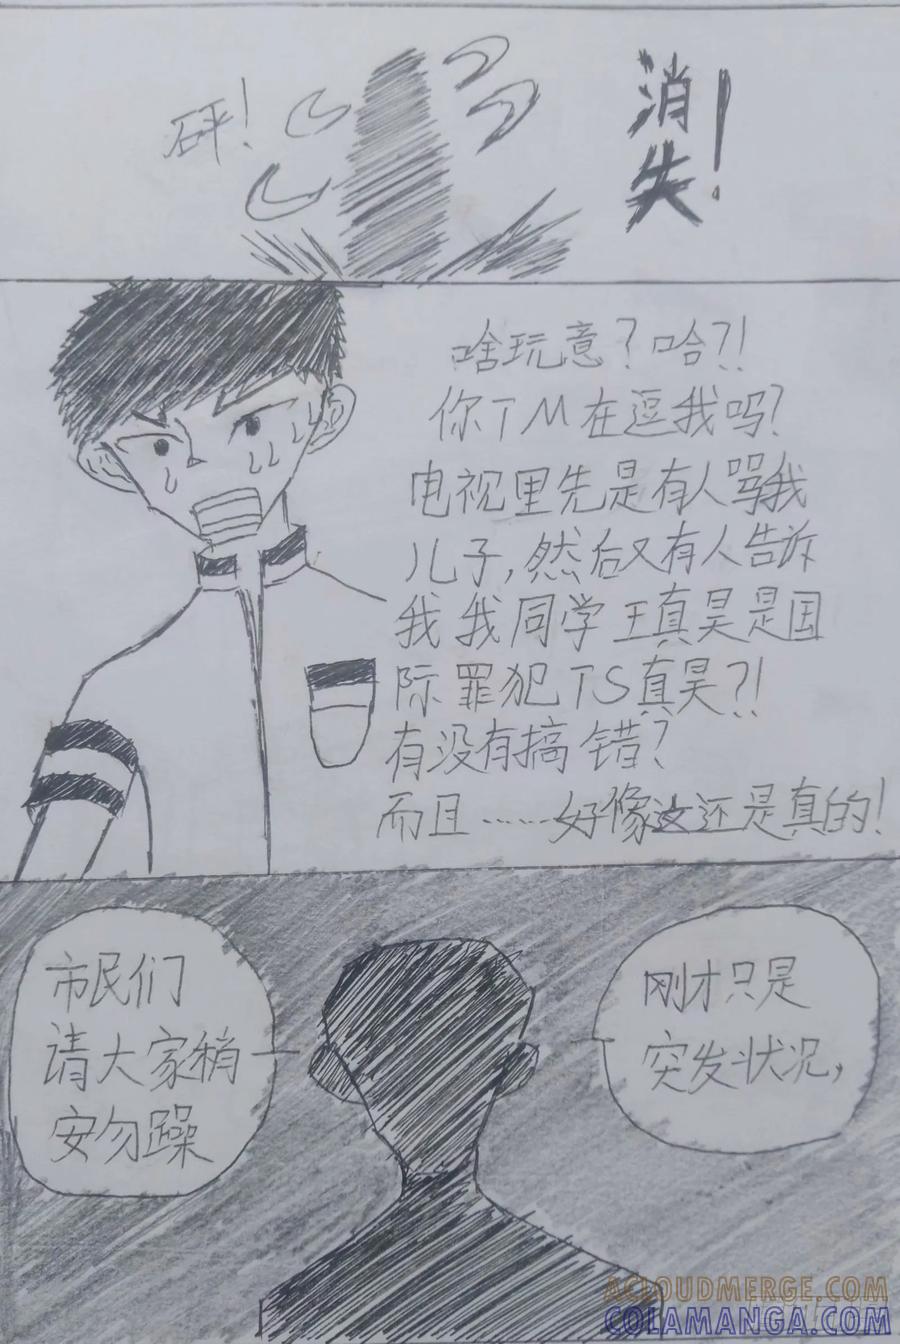 砰！
消
失！
啥玩意？哈？！
你TM在逗我吗？
电视里先是有人骂我
儿子，然后又有人告诉
我我同学王真昊是国
际罪犯TS真昊？！
有没有搞错？
而且……好像这还是真的！
市民们
请大家稍
安勿躁
刚才只是
突发状况，
ACLOUDMERGE.COM
COLAMANGA.COM